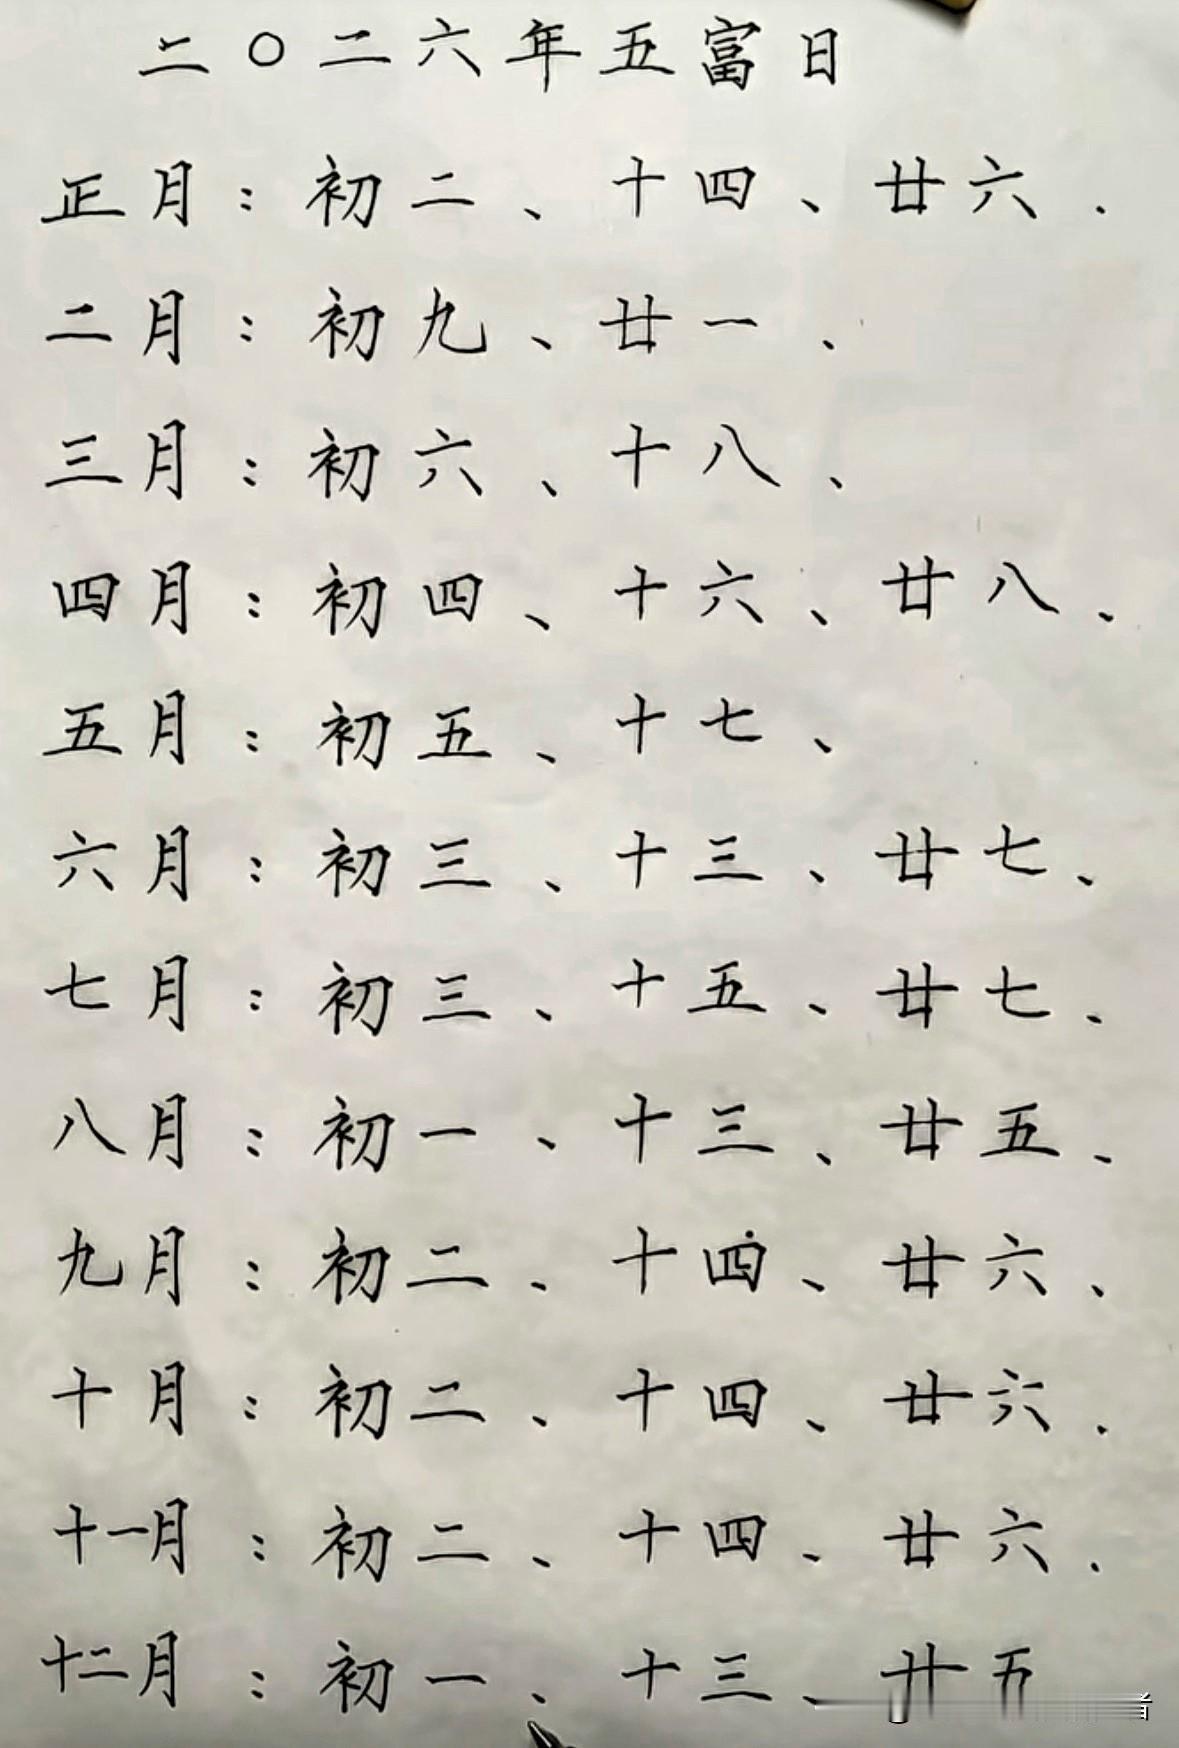 二〇二六年五富日
正月：初二、十四、廿六.
二月：初九、廿一、
三月：初六、十八、
四月：初四、十六、廿八、
五月：初五、十七、
六月：初三、十三、廿七、
七月：初三、十五、廿七、
八月：初一、十三、廿五、
九月：初二、十四、廿六、
十月：初二、十四、廿六.
十一月：初二、十四、廿六.
十二月：初一、十三、廿五